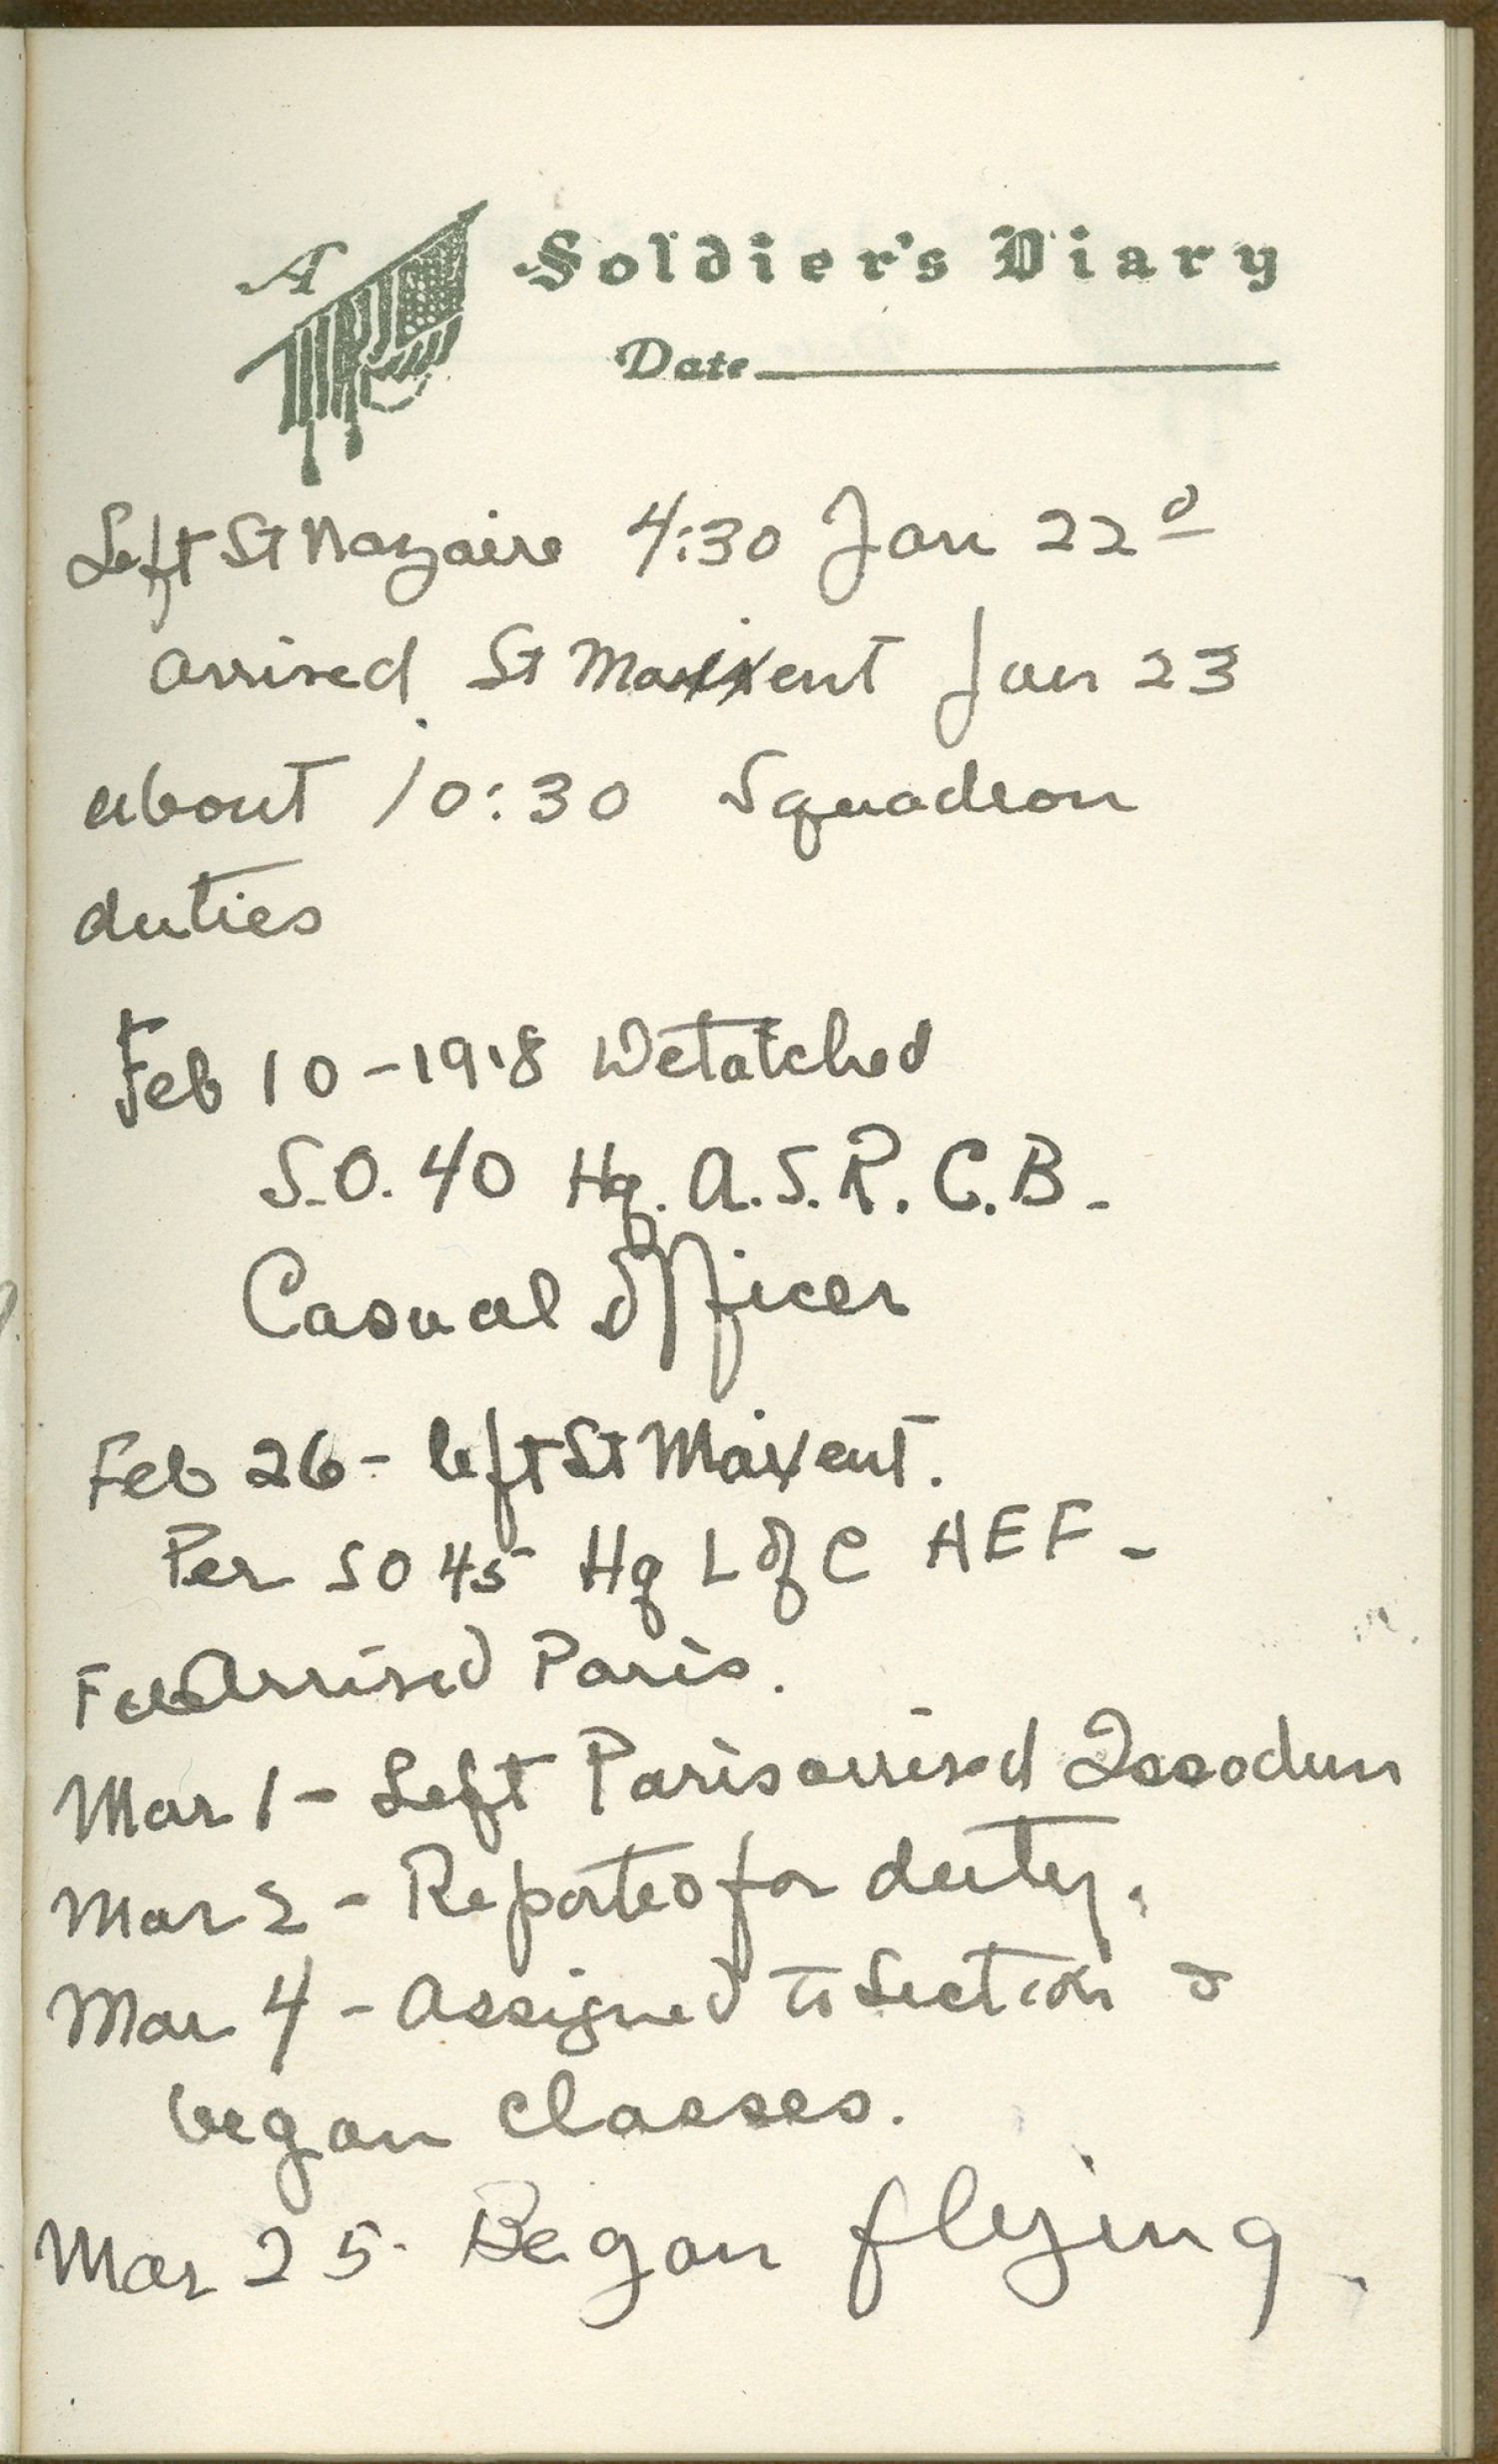 A Soldier's Diary
Date
Left St Nazaire 4:30 Jan 22d
arrived St Maixent Jan 23
about 10:30 Squadron
duties
Feb 10-1918 Detatched
S.O. 40 Hq. A.S.R.C.B-
Casual Officer
Feb 26- left St Maixent.
Per SO 45 Hq L of C AEF-
Feb Arrived Paris.
Mar 1- Left Paris arrived Issodun
Mar 2 - Reported for duty.
Mar 4 - Assigned to Section &
began classes.
Mar 25. Began flying.